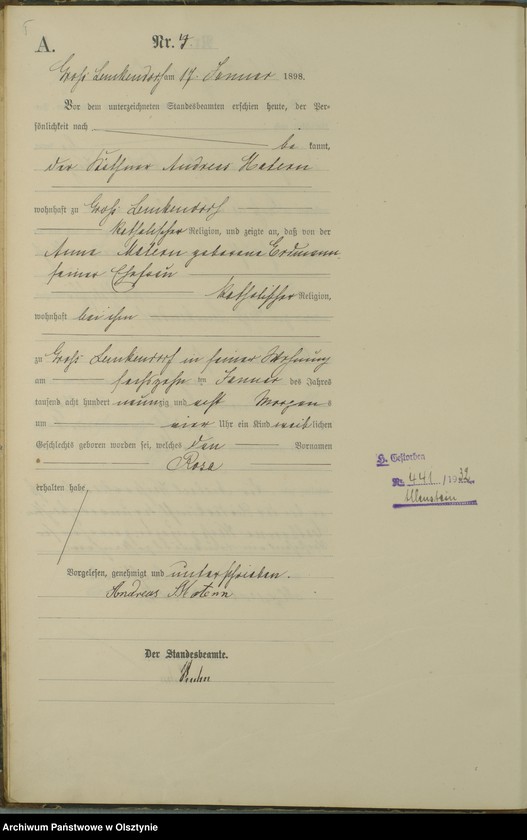 A.
Nr. 4
Groß Lemkendorf am 17. Januar 1898.
Vor dem unterzeichneten Standesbeamten erschien heute, der Per-
sönlichkeit nach
be kannt,
der Käthner Andreas Matern
wohnhaft zu Groß Lemkendorf
katholischer Religion, und zeigte an, daß von der
Anna Matern geborene Erdmann,
seiner Ehefrau
katholischer Religion,
wohnhaft bei ihm
zu Groß Lemkendorf in seiner Wohnung
am sechszehn ten Januar des Jahres
tausend acht hundert neunzig und acht Morgens
um vier Uhr ein Kind weiblichen
Geschlechts geboren worden sei, welches den Vornamen
Rosa
erhalten habe.
Vorgelesen, genehmigt und unterschrieben.
Andreas Matern
Der Standesbeamte.
H. Gestorben
Nr. 441 / 1939
Allenstein
Archiwum Państwowe w Olsztynie